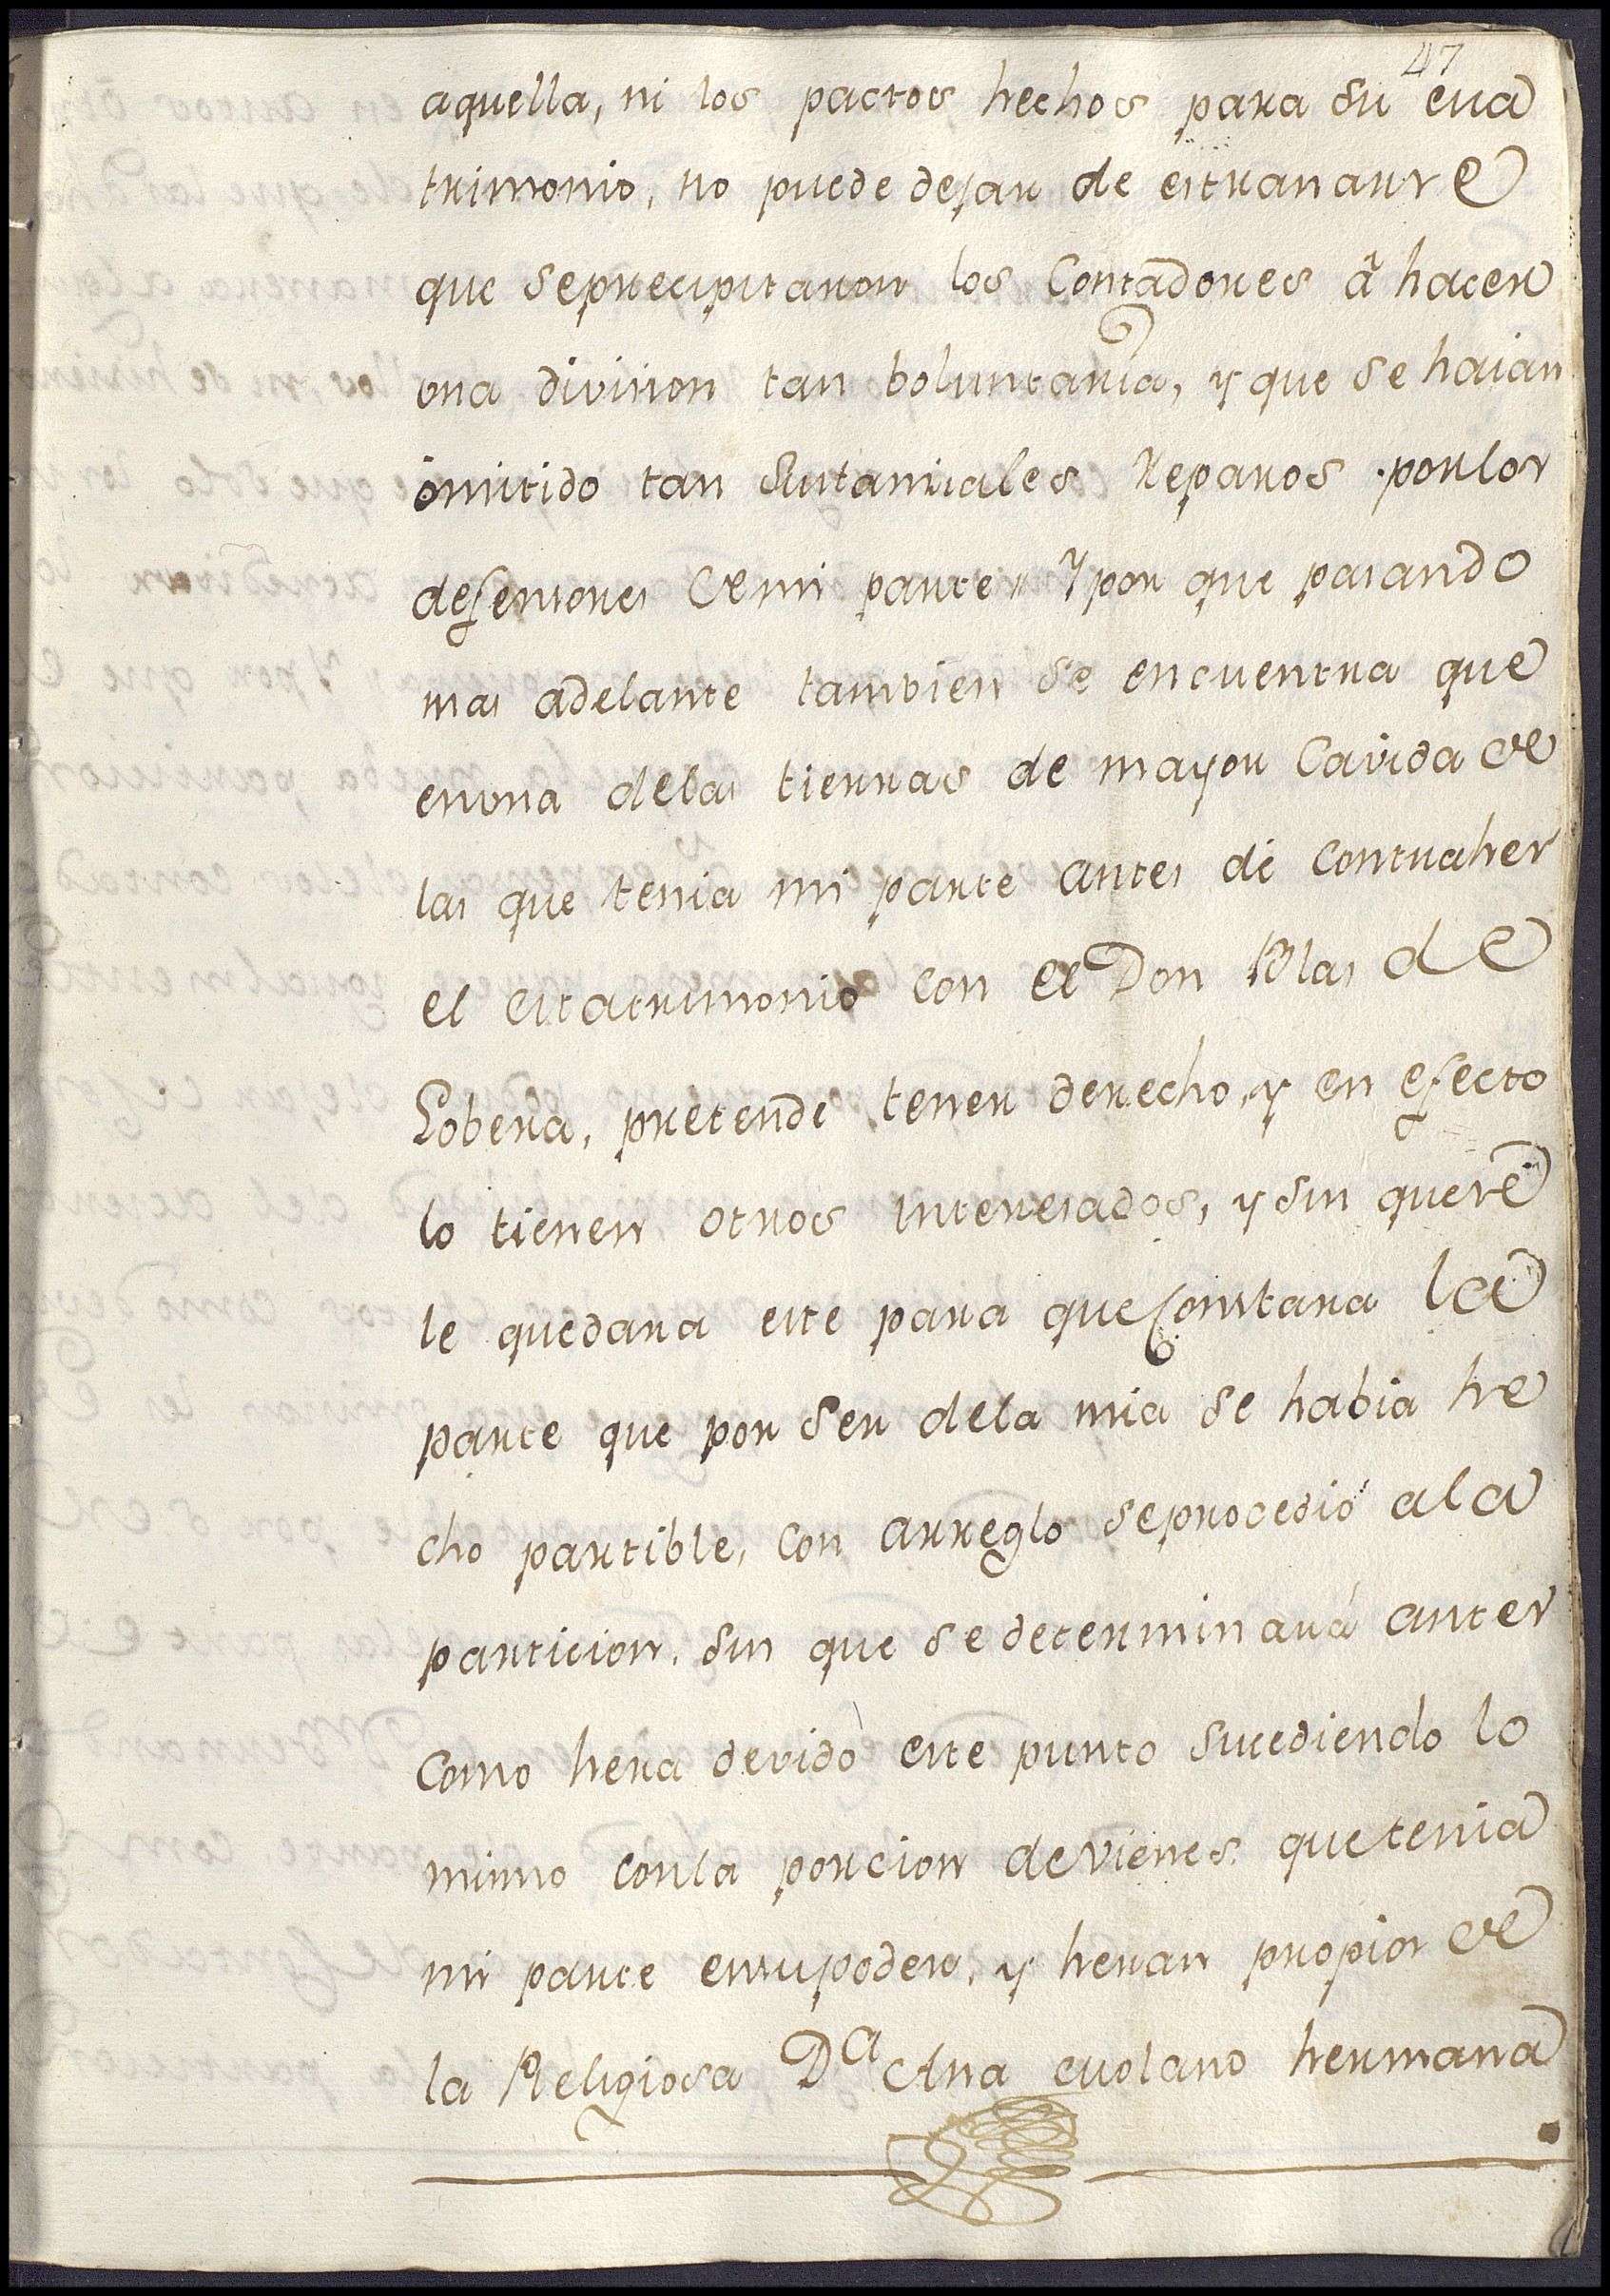 47
aquella, ni los pactos hechos para su Ma
trimonio, no puede dejar de estranarse
que seprecipitaron los Contadores â hacer
una division tan boluntaria, y que se haian
omitido tan sustanciales Reparos por los
defensores de mi parte " Y por que pasando
mas adelante tambien se encuentra que
en una delas tierras de mayor Cavida de
las que tenia mi parte antes de contraher
el Matrimonio con el Don Blas de
Lobera, pretende tener derecho, y en efecto
lo tienen otros interesados, y sin que se
le quedara este para que Constara la
parte que por ser dela mia se habia he
cho partible, con arreglo seprocedió ala
particion, sin que se determinará antes
como hera devido este punto sucediendo lo
mismo conla porcion devienes que tenia
mi parte ensupoder, y heran propios de
la Religiosa Dª Ana Molano hermana